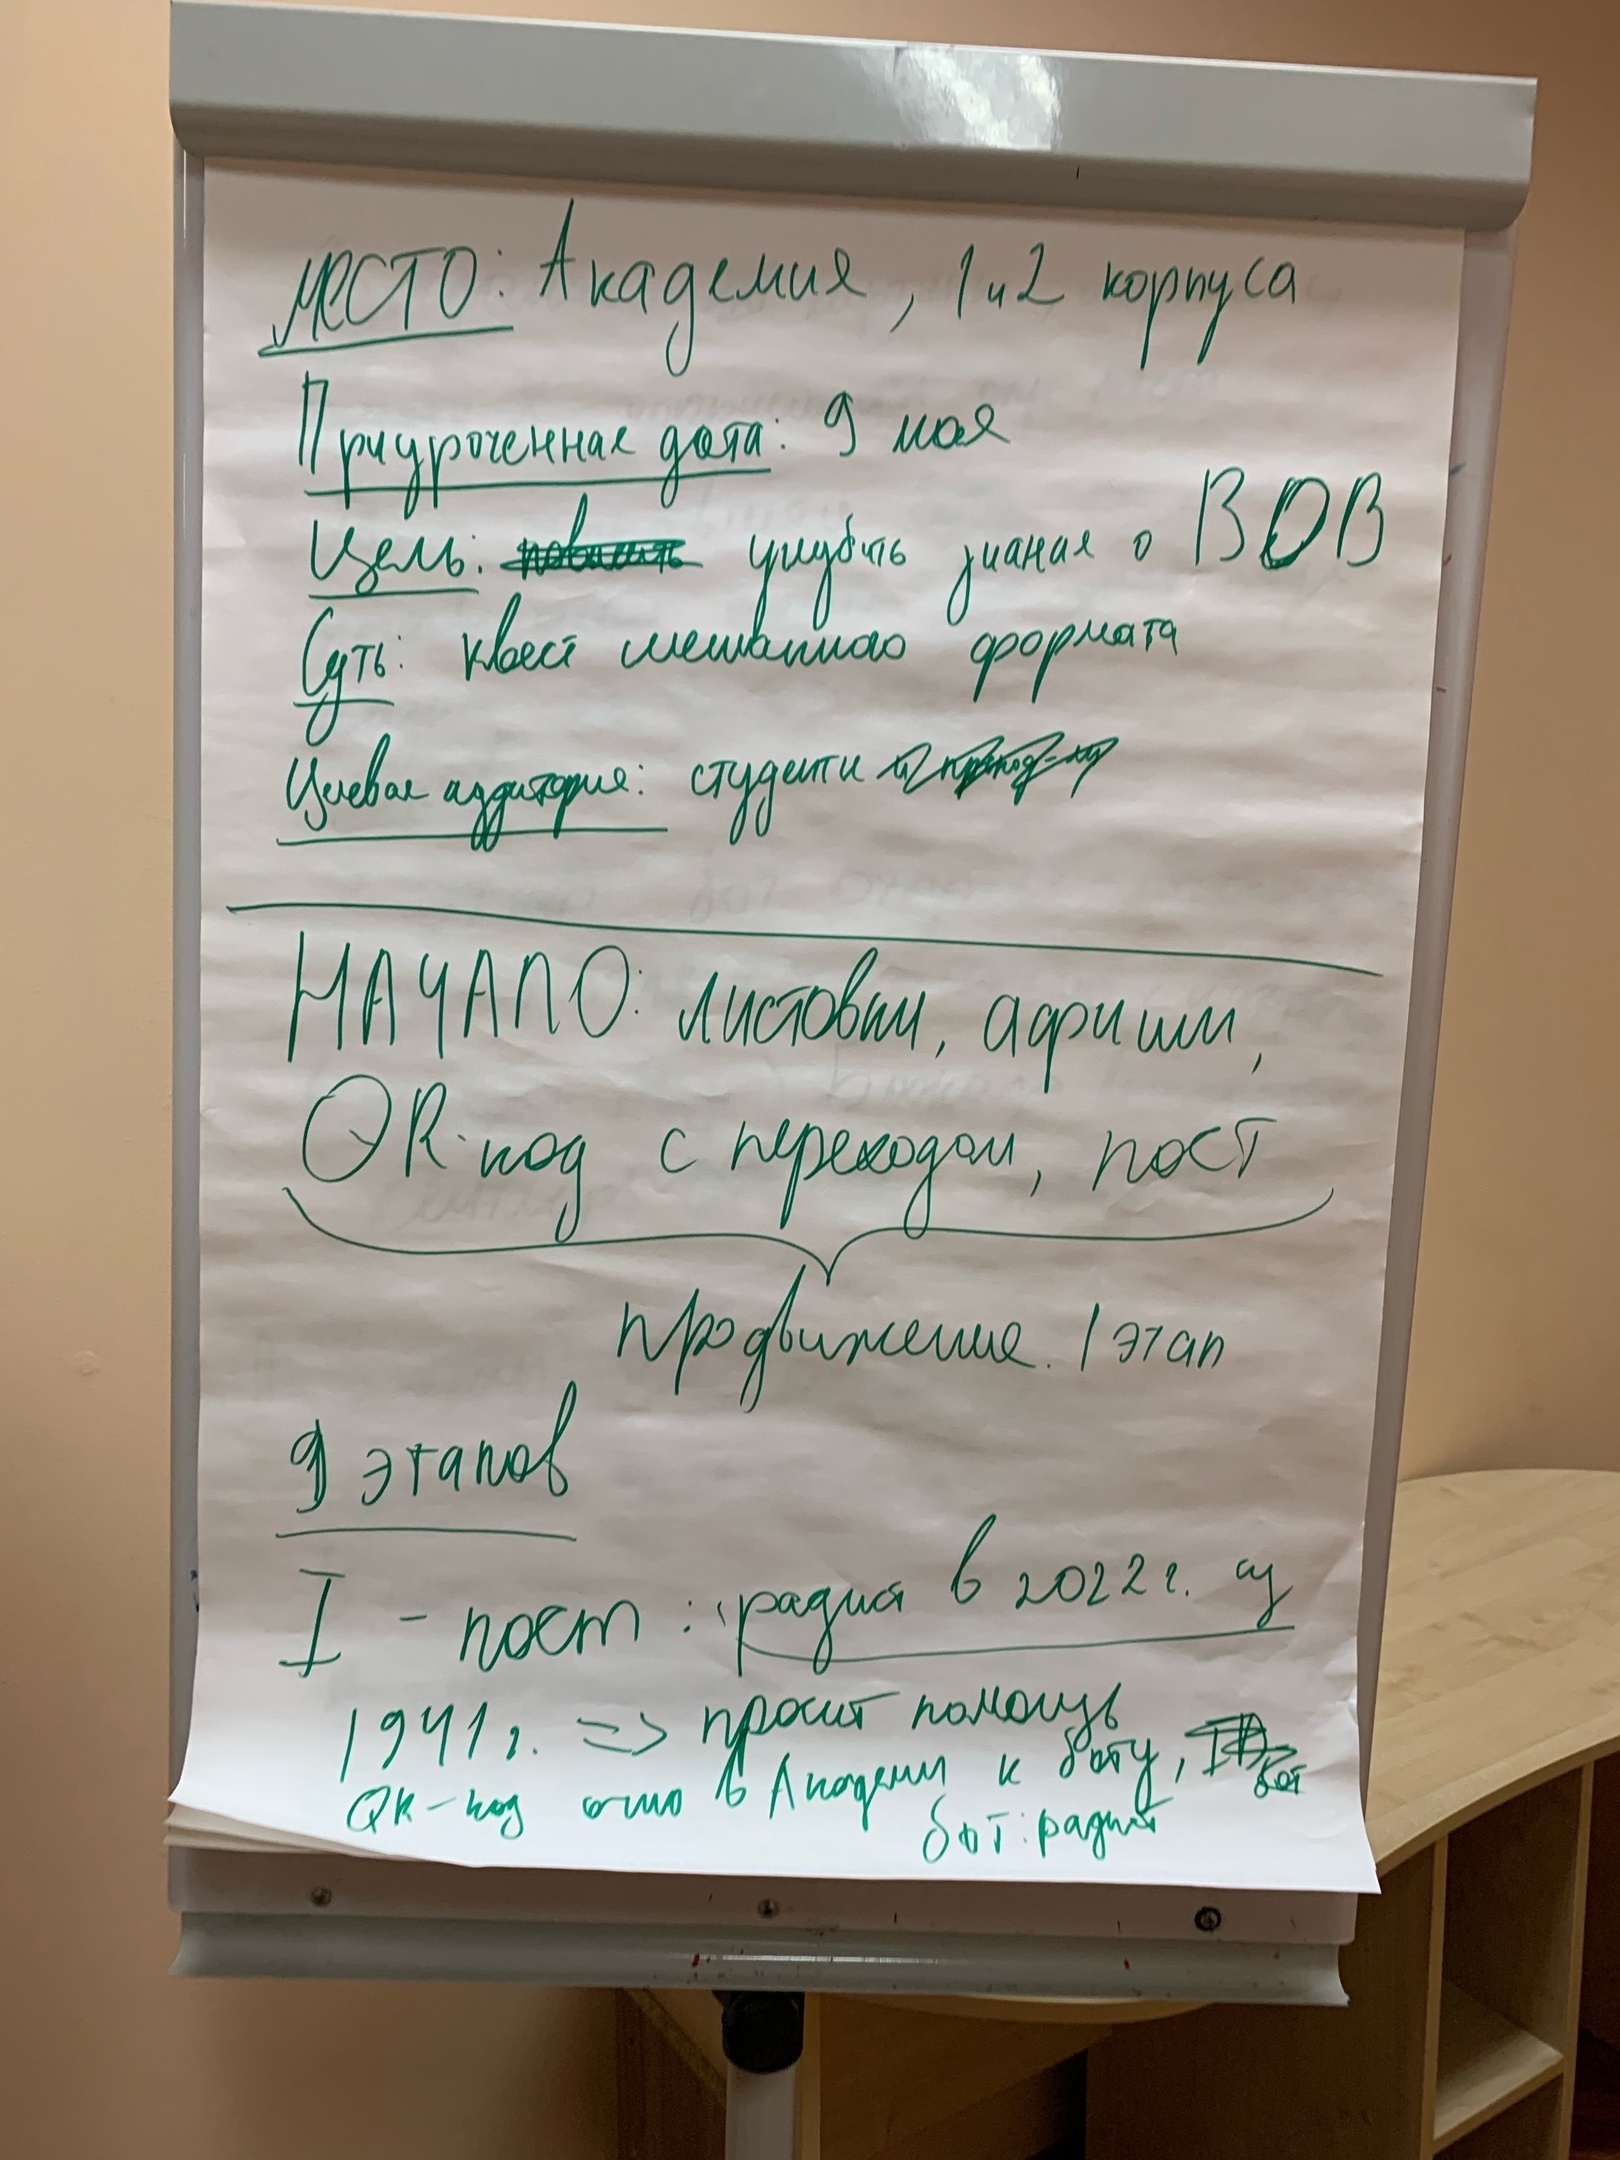 МЕСТО: Академия, 1 и 2 корпуса
Приуроченная дата: 9 мая
Цель: углубить знания о ВОВ
Суть: квест смешанного формата
Целевая аудитория: студенты
НАЧАЛО: листовки, афиши,
QR-код с переходом, пост
продвижение. 1 этап
9 этапов
I - пост: рация в 2022 г. из
1941 г. => просит помощь
QR-код в Академии к боту, бот
бот: радист